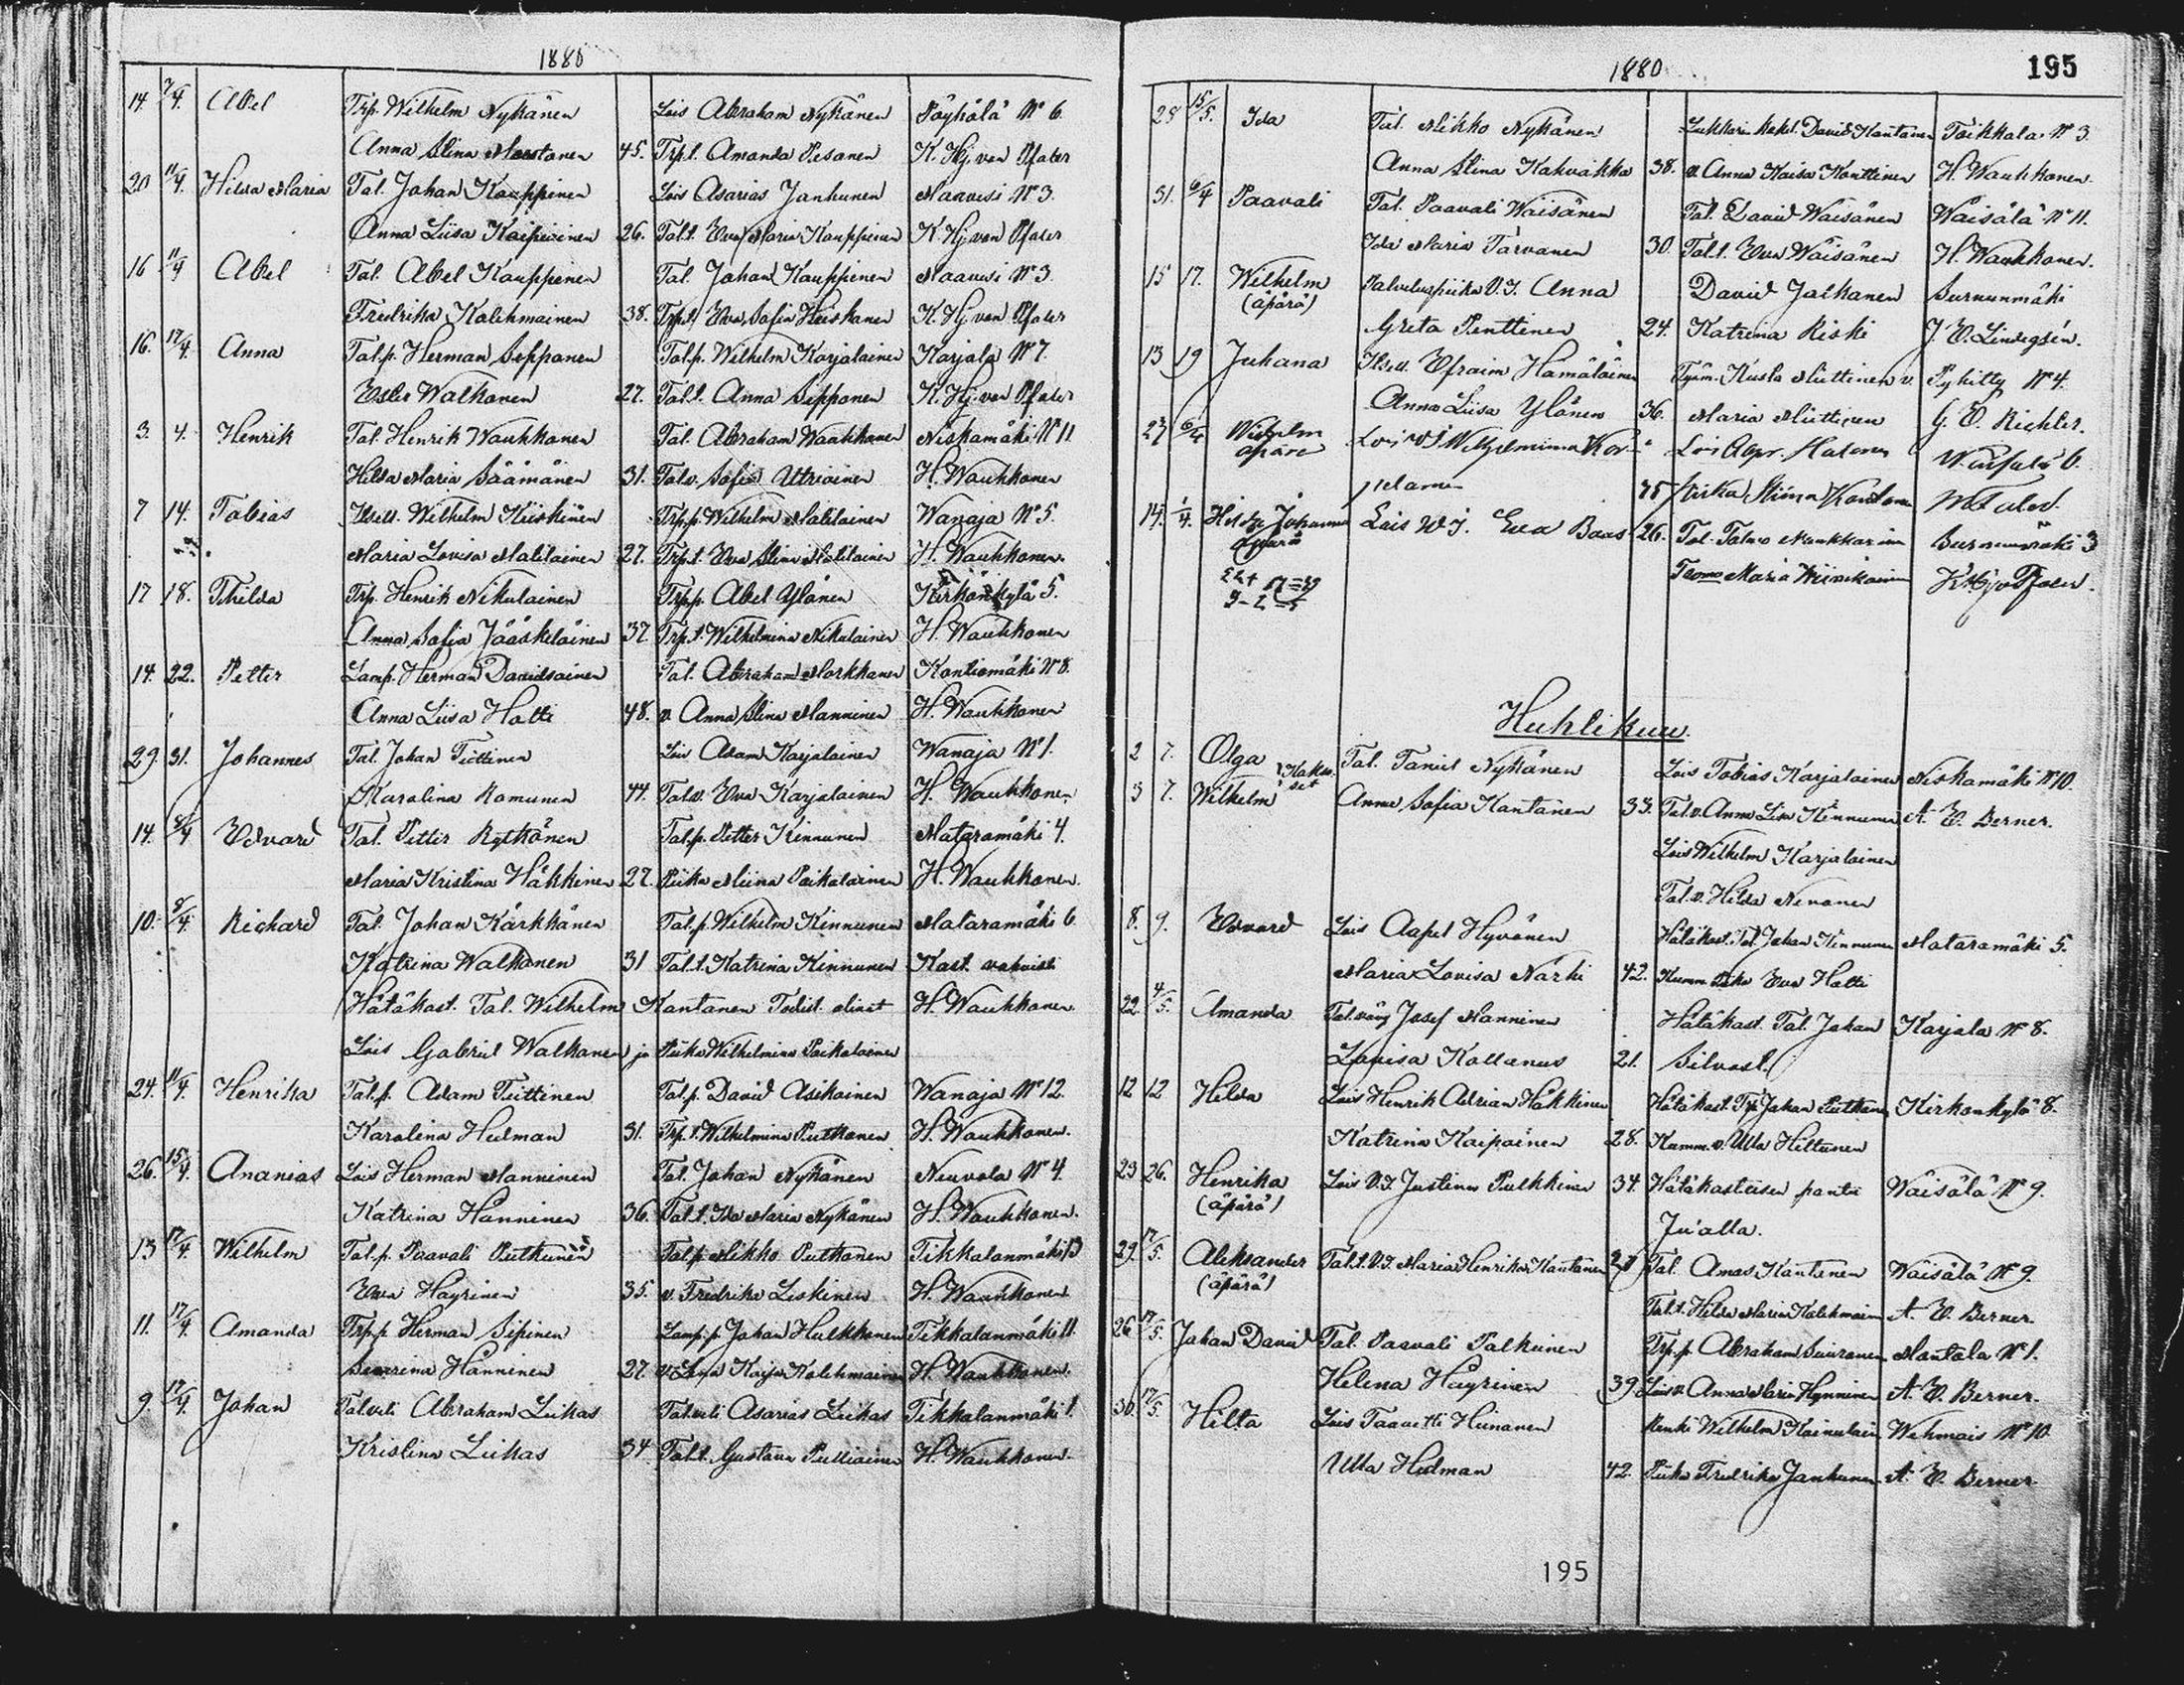 1880
14. 7/4. Abel Trp. Wilhelm Nykänen Lois Abraham Nykänen Pöyhölä N° 6.
Anna Stina Mustonen 45. Trp.t. Amanda Pesonen K. Hj. von Pfaler
20 11/4. Hilda Maria Tal. Johan Kauppinen Lois Asarias Janhunen Maavesi N° 3.
Anna Liisa Kaipainen 26. Tal.t. Eva Maria Kauppinen K. Hj. von Pfaler
16 11/4 Abel Tal. Abel Kauppinen Tal. Johan Kauppinen Maavesi N° 3.
Fredrika Kolehmainen 38. Trp.t. Eva Sofia Heiskanen K. Hj. von Pfaler
16. 17/4. Anna Tal.p. Herman Sepponen Tal.p. Wilhelm Karjalainen Karjala N° 7.
Ester Walkonen 27. Tal.t. Anna Sepponen K. Hj. von Pfaler
3. 4. Henrik Tal. Henrik Waukkonen Tal. Abraham Waukkonen Niskamäki N° 11
Hilda Maria Säämänen 31. Tal.v. Sofia Utriainen H. Waukkonen
7 14. Tobias Itsell. Wilhelm Kiiskinen Trp.p. Wilhelm Malilainen Wanaja N° 5.
Maria Lovisa Malilainen 27. Trp.t. Eva Stina Malilainen H. Waukkonen.
17 18. Thilda Trp. Henrik Nikulainen Trp.p. Abel Ylönen Kirkonkylä 5.
Anna Sofia Jääskeläinen 37. Trp.t. Wilhelmina Nikulainen H. Waukkonen
14. 22. Petter Lamp. Herman Davidsainen Tal. Abraham Markkanen Kontiomäki N° 8.
Anna Liisa Hatti 48. v. Anna Stina Manninen H. Waukkonen
29. 31. Johannes Tal. Johan Tiittinen Lois Adam Karjalainen Wanaja N° 1.
Karolina Komunen 44. Tal.v. Eva Karjalainen H. Waukkonen.
14. 8/4 Edvard Tal. Petter Rytkönen Tal.p. Petter Kinnunen Mataramäki 4.
Maria Kristina Häkkinen 27. Piika Miina Paikalainen H. Waukkonen.
10. 8/4. Rickard Tal. Johan Kärkkänen Tal.p. Wilhelm Kinnunen Mataramäki 6
Katrina Walkonen 31 Tal.t. Katrina Kinnunen Kast. vahvisti
Hätäkast. Tal. Wilhelm Kantanen Todist. olivat H. Waukkonen
Lois Gabriel Walkonen ja Piika Wilhelmina Paikalainen
24. 11/4. Henrika Tal.p. Adam Tiittinen Tal.p. David Asikainen Wanaja N° 12.
Karolina Hulman 31. Trp.t. Wilhelmina Putkonen H. Waukkonen.
26. 15/4. Ananias Lois Herman Manninen Tal. Johan Nykänen Neuvola N° 4.
Katrina Hänninen 36. Tal.t. Ida Maria Nykänen H. Waukkonen.
13 17/4. Wilhelm Tal.p. Paavali Putkunen Tal.p. Mikko Putkonen Tikkalanmäki 13
Eva Häyrinen 35. v. Fredrika Leskinen H. Waukkonen
11. 17/4. Amanda Trp.p. Herman Sipinen Lamp.p. Johan Hulkkonen Tikkalanmäki 11.
Severina Hänninen 27. v. Lena Kaisa Kolehmainen H. Waukkonen.
9. 17/4. Johan Tal.veli Abraham Liikas Tal.veli Asarias Liikas Tikkalanmäki 1.
Kristina Liikas 34 Tal.t. Gustava Pulliainen H. Waukkonen.
1880
195
28 15/5. Ida Tal. Mikko Nykänen Lukkarin David Kantanen Toikkala N° 3
Anna Stina Kakvakka 38. v. Anna Kaisa Konttinen H. Waukkonen.
31. 6/4 Paavali Tal. Paavali Wäisänen Tal. David Wäisänen Wäisälä N° 11.
Ida Maria Tarvanen 30 Tal.t. Eva Wäisänen H. Waukkonen.
15 17. Wilhelm Palveluspiika V. J. Anna David Jalkanen Surnunmäki
(äpärä) Greta Penttinen 24. Katrina Riski J. E. Lindegsén.
13 19 Juhana Itsell. Efraim Hämäläinen Työm. Kusta Miettinen v. Pyhitty N° 4.
Anna Liisa Ylönen 36. Maria Miettinen G. E. Richter.
27 6/4 Wilhelm Lois W J Wilhelmina Kor- Lois Abr.
äpärä 6.
14. 1/4. Hilda Johanna Lois W J. Eva Baas 26. Tal. Surnunmäki 3
äpärä Maria
Huhtikuu.
2 7. Olga Kakso- Tal. Taniel Nykänen Lois Tobias Karjalainen Niskamäki N° 10.
3 7. Wilhelm set Anna Sofia Kantanen 33. Tal.v. Anna Liisa Kinnunen A. E. Berner.
Lois Wilhelm Karjalainen
Tal.v. Hilda Nenonen
8. 9. Edvard Lois Aapel Hyvönen Hätäkast. Tal. Johan Kinnunen Mataramäki 5.
Maria Lovisa Närhi 42. Kumm. Piika Eva Hatti
22 4/5. Amanda Tal.väv. Josef Manninen Hätäkast. Tal. Johan Karjala N° 8.
Lovisa Kollanus 21. Silvast.
12 12 Hilda Lois Henrik Adrian Häkkinen Hätäkast. Trp. Johan Putkonen Kirkonkylä 8.
Katrina Kaipainen 28. Kumm. v. Ulla Hiltunen
23 26. Henrika Lois V. J. Justina Pulkkinen 34. Hätäkasteisen pantu Wäisälä N° 9.
(äpärä) Ju'alla.
29. 17/5. Aleksander Tal.t. V. J. Maria Henrika Kantanen 21 Tal. Amos Kantanen Wäisälä N° 9.
(äpärä) Tal.t. Hilda Maria Kolehmainen A. E. Berner.
26 17/5. Johan David Tal. Paavali Palkinen Trp.p. Abraham Suuronen Mantala N° 1.
Helena Häyrinen 39 Lois.v. Anna Maria Hynninen A. E. Berner.
30. 17/5. Hilta Lois Taavetti Heinanen Renki Wilhelm Kainulain. Wehmais N° 10
Ulla Hulman 42. Piika Fredrika Janhunen A. E. Berner
195